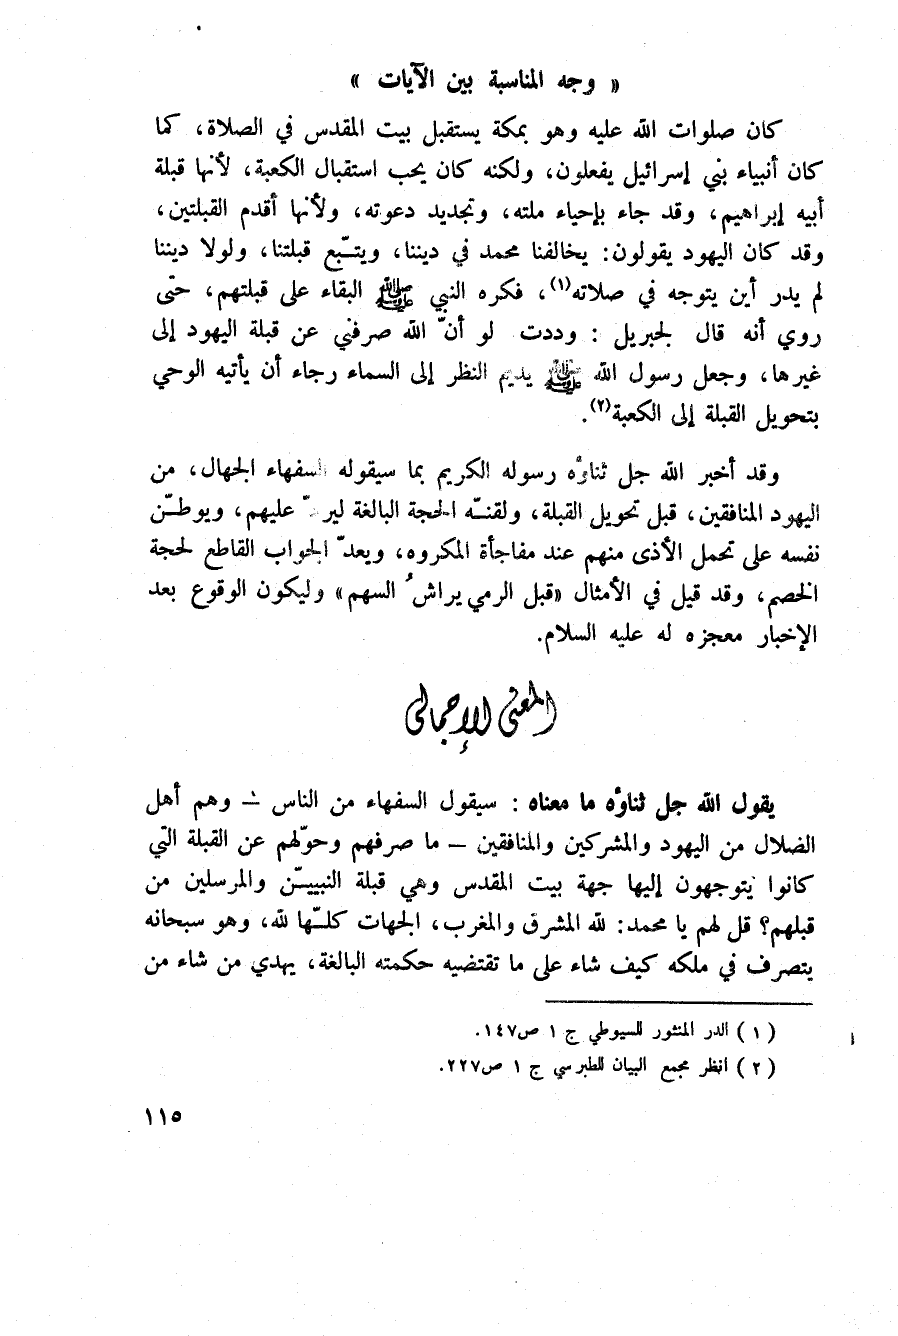 « وجه المناسبة بين الآيات »
كان صلوات الله عليه وهو بمكة يستقبل بيت المقدس في الصلاة، كما
كان أنبياء بني إسرائيل يفعلون، ولكنه كان يحب استقبال الكعبة، لأنها قبلة
أبيه إبراهيم، وقد جاء بإحياء ملته، وتجديد دعوته، ولأنها أقدم القبلتين،
وقد كان اليهود يقولون: يخالفنا محمد في ديننا، ويتّبع قبلتنا، ولولا ديننا
لم يدر أين يتوجه في صلاته(١)، فكره النبي ﷺ البقاء على قبلتهم، حتّى
روي أنه قال لجبريل : وددت لو أنّ الله صرفني عن قبلة اليهود إلى
غيرها، وجعل رسول الله ﷺ يديم النظر إلى السماء رجاء أن يأتيه الوحي
بتحويل القبلة إلى الكعبة(٢).
وقد أخبر الله جل ثناؤه رسوله الكريم بما سيقوله السفهاء الجهال، من
اليهود المنافقين، قبل تحويل القبلة، ولقنّه الحجة البالغة ليردّ عليهم، ويوطّن
نفسه على تحمل الأذى منهم عند مفاجأة المكروه، ويعدّ الجواب القاطع لحجة
الخصم، وقد قيل في الأمثال «قبل الرمي يراشُ السهم» وليكون الوقوع بعد
الإخبار معجزه له عليه السلام.
المعنى الإجمالي
يقول الله جل ثناؤه ما معناه : سيقول السفهاء من الناس – وهم أهل
الضلال من اليهود والمشركين والمنافقين – ما صرفهم وحوّلهم عن القبلة التي
كانوا يتوجهون إليها جهة بيت المقدس وهي قبلة النبييّن والمرسلين من
قبلهم؟ قل لهم يا محمد: لله المشرق والمغرب، الجهات كلّها لله، وهو سبحانه
يتصرف في ملكه كيف شاء على ما تقتضيه حكمته البالغة، يهدي من شاء من
(١) الدر المنثور للسيوطي ج ١ ص١٤٧.
(٢) انظر مجمع البيان للطبرسي ج ١ ص٢٢٧.
١١٥